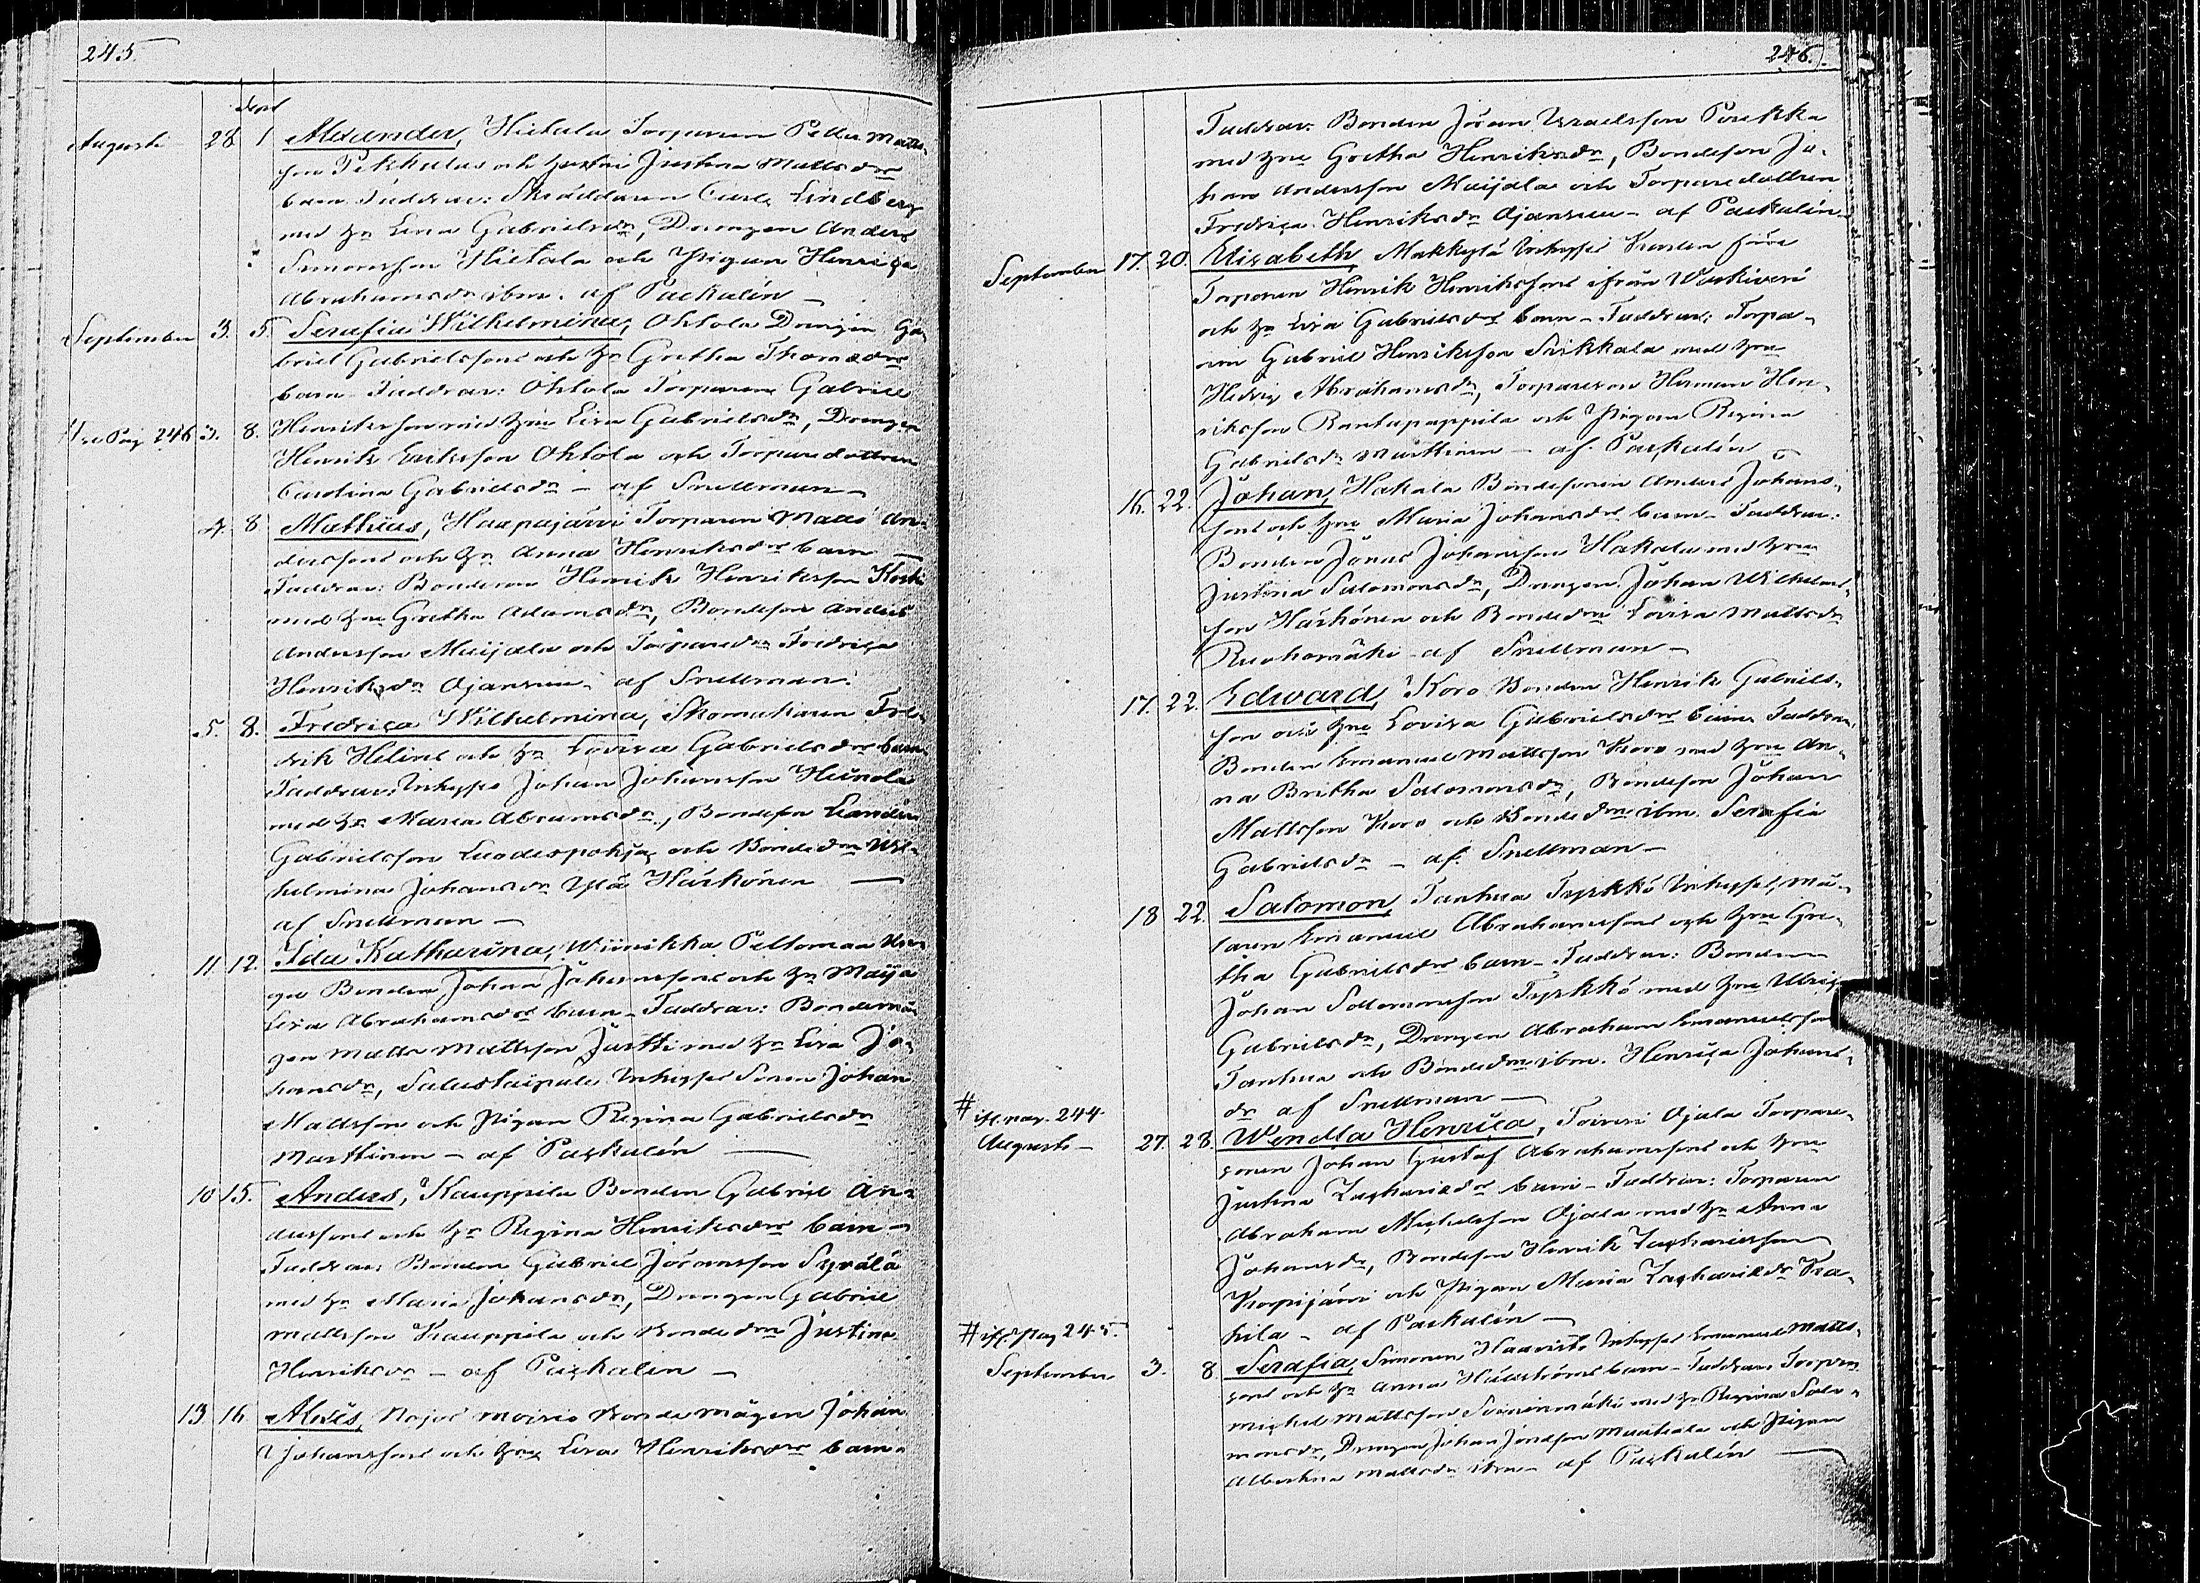 245.
Sept
Augusti 28 1 Alexander, Hietala Torparen Petter Matts-
son Pekkalas och hustru Justina Mattsdrs
barn Faddrar: Skräddaren Carl Lindberg
med h. Lisa Gabrielsdr, Drengen Anders
Simonsson Hietala och Pigan Henrica
Abrahamsdr ibm. af Packalén –
September 3. 5. Serafia Wilhelmina, Ohtola Drengen Ga-
briel Gabrielssons och h. Gretha Thomasdrs
barn Faddrar: Ohtola Torparen Gabriel
# se Pag 246 3. 8. Henriksson med hu Lisa Gabrielsdr, Drengen
Henrik Eriksson Ohtola och Torparedottren
Carolina Gabrielsdr – af Snellman –
4. 8 Mathias, Haapajärvi Torparen Matts An-
derssons och h. Anna Henriksdrs barn –
Faddrar: Bonden Henrik Henriksson Koski
med hu Gretha Adamsdr, Bondeson Anders
Andersson Maijala och Torparedr Fredrica
Henriksdr Ojansuu. af Snellman.
5. 8. Fredrica Wilhelmina, Skomakaren Fre-
drik Helins och h. Lovisa Gabrielsdrs barn
Faddrar: Inhyses Johan Johansson Heinola
med h. Maria Abramsdr, Bondeson Leander
Gabrielsson Luodespohja och Bondedr Wil-
helmina Johansdr Ylä Härkönen –
af Snellman –
11 12. Ida Katharina, Wiinikka Peltomaa
Bonden Johan Johanssons och h. Maija
Lisa Abrahamsdrs barn – Faddrar: Bondemå-
gen Matts Mattsson Justti med h. Lisa Jo-
hansdr, Salustaipale Inhyses Sonen Johan
Mattsson och Pigan Regina Gabrielsdr
Marttinen – af Packalén –
10 15. Anders, Kauppila Bonden Gabriel An-
derssons och h. Regina Henriksdrs barn –
Faddrar: Bonden Gabriel Göransson Syvälä
med h. Maria Johansdr, Drengen Gabriel
Mattsson Kauppila och Bondedr Justina
Henriksdr – af Packalén –
13 16 Alexis, Bondemågen Johan
Johanssons och hu Lisa Henriksdrs barn
246.
Faddrar: Bonden Jöran Israelsson
med hu Gretha Henriksdr, Bondeson Jo-
han Andersson Maijala och Torparedottren
Fredrica Henriksdr Ojansuu – af Packalén –
September 17. 20. Elisabeth, Makkylä Inhyses Karlen före
Torparen Henrik Henrikssons ifrån
och h. Lisa Gabrielsdrs barn – Faddrar: Torpa-
ren Gabriel Henriksson Sikkala med hu
Hedvig Abrahamsdr, Torpareson Herman Hen-
riksson Rantapappila och Pigan Regina
Gabrielsdr Marttinen – af Packalén –
16. 22. Johan, Hakala Bondesonen Anders Johans-
sons och hu Maria Johansdrs barn – Faddrar:
Bonden Jonas Johansson Hakala med hu
Justina Salomonsdr, Drengen Johan Wilhelms-
son Härkönen och Bondedr Lovisa Mattsdr
Ruohomäki af Snellman –
17. 22. Edward, Koro Bonden Henrik Gabriels-
son och hu Lovisa Gabrielsdrs barn Faddrar:
Bonden Emanuel Mattsson Koro med hu An-
na Britha Salomonsdr, Bondeson Johan
Mattsson Koro och Bondedr ibm. Serafia
Gabrielsdr – af Snellman –
18 22. Salomon, Tanhua Tyrkkö Inhyses, Må-
laren Emanuel Abrahamssons och hu Gre-
tha Gabrielsdrs barn – Faddrar: Bonden
Johan Salomonsson Tyrkkö med hu Ulrica
Gabrielsdr, Drengen Abraham Emanuelsson
Tanhua och Bondedr ibm. Henrica Johans-
dr af Snellman –
# if. pag. 244
Augusti – 27. 28. Wendla Henrica, Toiveri Ojala Torpare-
sonen Johan Gustaf Abrahamssons och hu
Justina Zachariedrs barn – Faddrar: Torparen
Abraham Michelsson Ojala med h. Anna
Johansdr, Bondeson Henrik Zachariesson
Korpijärvi och Pigan Maria Zachariedr
– af Packalén –
# if. Pag 245.
September 3. 8 Serafia, Simonen Haavisto Inhyses Emanuel Matts-
sons och h. Anna barn – Faddrar: Torparen
Michel Mattsson med h. Regina Salo-
monsdr, Drengen Johan Mattsson och Pigan
Albertina Mattsdr ibm – af Packalén –